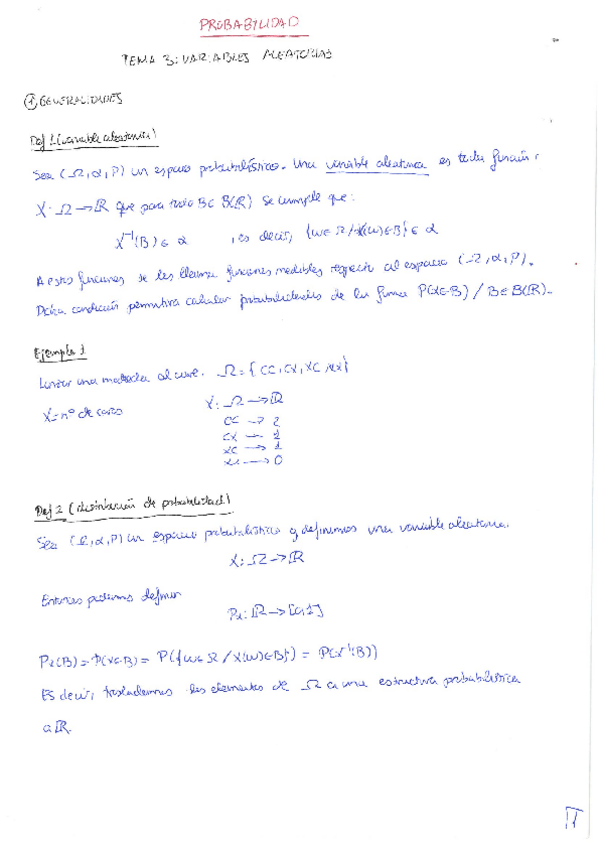 PROBABILIDAD
TEMA 3: VARIABLES ALEATORIAS
① GENERALIDADES
Def 1 (variable aleatoria)
Sea (Ω, α, P) un espacio probabilístico. Una variable aleatoria es toda función:
X: Ω → ℝ que para todo B ∈ B(ℝ) se cumple que:
X⁻¹(B) ∈ α , es decir, {ω ∈ Ω / X(ω) ∈ B} ∈ α
A estas funciones se les llama funciones medibles respecto al espacio (Ω, α, P).
Dicha condición permitirá calcular probabilidades de la forma P(X∈B) / B ∈ B(ℝ).
Ejemplo 1
Lanzar una moneda al aire. Ω = {CC, CX, XC, XX}
X = nº de caras
X: Ω → ℝ
CC → 2
CX → 1
XC → 1
XX → 0
Def 2 (distribución de probabilidad)
Sea (Ω, α, P) un espacio probabilístico y definimos una variable aleatoria.
X: Ω → ℝ
Entonces podemos definir
Px: ℝ → [0,1]
Px(B) = P(X∈B) = P({ω ∈ Ω / X(ω) ∈ B}) = P(X⁻¹(B))
Es decir, trasladamos los elementos de Ω a una estructura probabilística
a ℝ.